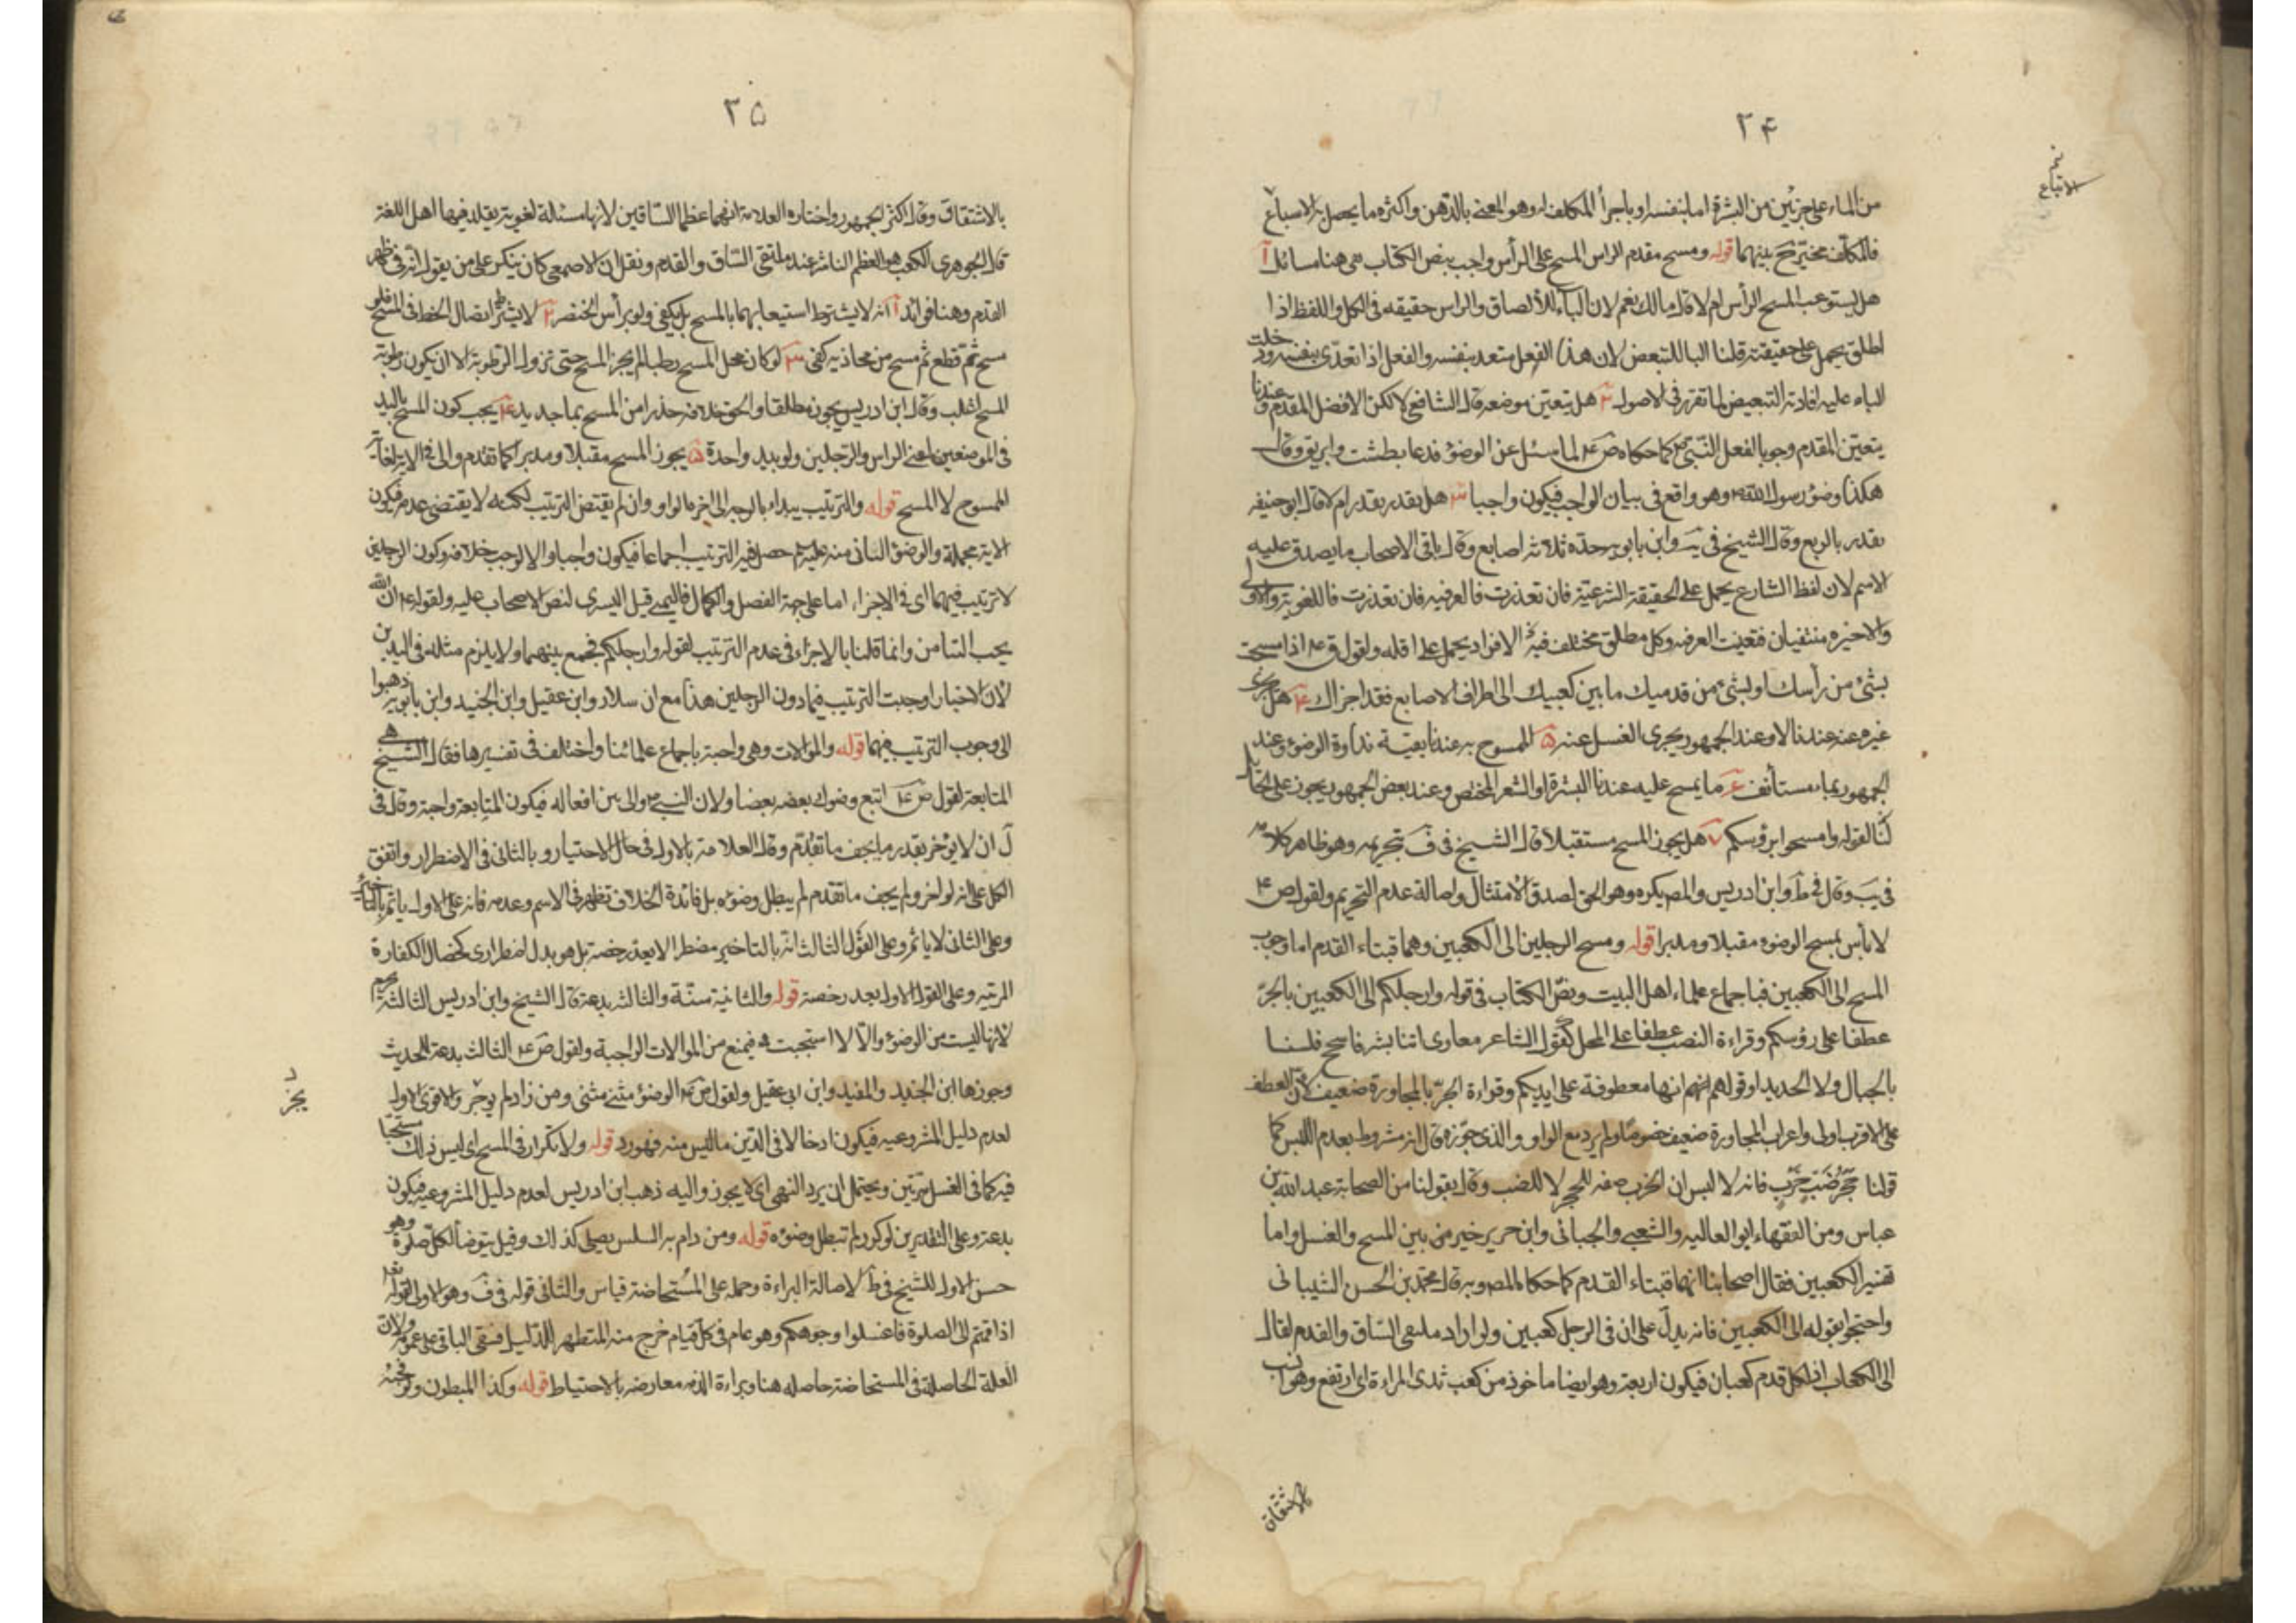 ۲۴
من الماء على جزئين من البشرة اما بنفسه او باجراء المكلف له وهو المعنى بالدهن واكثره ما يحصل به الاسباغ
فالمكلف مخير ح بينهما قوله ومسح مقدم الراس المسح على الرأس واجب بنص الكتاب هنا مسائل آ
هل يستوعب المسح الرأس ام لا قال مالك نعم لان الباء للالصاق والراس حقيقه فى الكل واللفظ اذا
اطلق يحمل على حقيقته قلنا الباء للتبعض لان هذا الفعل متعد بنفسه والفعل اذا تعدى بنفسه ودخلت
الباء عليه افادته التبعيض لما تقرر فى الاصول ٢ هل يتعين موضعه قال الشافعى لا لكن الافضل المقدم وعندنا
يتعين المقدم وجوبا لفعل النبى كما حكاه ص ع لما سئل عن الوضوء فدعا بطشت وابريق وقال
هكذا وضوء رسول الله وهو واقع فى بيان الواجب فيكون واجبا ٣ هل يقدر بقدر ام لا قال ابو حنيفه
يقدر بالربع وقال الشيخ فى يه وابن بابويه حده ثلاثة اصابع وقال باقى الاصحاب ما يصدق عليه
الاسم لان لفظ الشارع يحمل على الحقيقة الشرعية فان تعذرت فالعرفيه فان تعذرت فاللغوية والاولى
والاخيره منتفيان فتعينت العرفيه وكل مطلق مختلف فيه الافراد يحمل على اقله ولقول ق ع اذا مسحت
بشئ من رأسك او بشئ من قدميك ما بين كعبيك الى اطراف الاصابع فقد اجزاك ٤ هل يجزى
غيره عنه عندنا لا وعند الجمهور يجرى الغسل عنه ٥ الممسوح به عندنا بقية نداوة الوضوء وعند
الجمهور بماء مستأنف ع ما يمسح عليه عندنا البشرة او الشعر المختص وعند بعض الجمهور يجوز على الحائل
لنا لقوله وامسحوا برؤسكم ٧ هل يجوز المسح مستقبلا قال الشيخ فى ف بتحريمه وهو ظاهر كلامه
فى يب وقال فى ط وابن ادريس والمصـ يكره وهو الحق لصدق الامتثال واصالة عدم التحريم ولقول ص ع
لا بأس بمسح الوضوء مقبلا ومدبرا قوله ومسح الرجلين الى الكعبين وهما قبتاء القدم اما وجوب
المسح الى الكعبين فباجماع علماء اهل البيت وبنص الكتاب فى قوله وارجلكم الى الكعبين بالجر
عطفا على رؤسكم وقراءة النصب عطفا على المحل كقول الشاعر معاوى اننا بشر فاسجح فلسنا
بالجبال ولا الحديدا وقولهم انها معطوفة على ايديكم وقراءة الجر بالمجاورة ضعيف لان العطف
على الاقرب اولى واعراب المجاورة ضعيف خصوصا ولم يرد مع الواو والذى جوزه قال انه مشروط بعدم اللبس كما
قولنا جحر ضب خرب فانه لا لبس ان الخرب صفه للحجر لا للضب وقال بقولنا من الصحابة عبد الله بن
عباس ومن الفقهاء ابو العاليه والشعبى والجبائى وابن جرير خير من بين المسح والغسل واما
تفسير الكعبين فقال اصحابنا انهما قبتاء القدم كما حكاه المصـ وبه قال محمد بن الحسن الشيبانى
واحتجوا بقوله الى الكعبين فانه يدل على ان فى الرجل كعبين ولو اراد ملتقى الساق والقدم لقال
الى الكعاب اذ لكل قدم كعبان فيكون اربعة وهو ايضا ماخوذ من كعب ثدى المراءة اى ارتفع وهو انسب
۲۵
بالاشتقاق وقال اكثر الجمهور واختاره العلامة انهما عظما الساقين لانها مسئلة لغوية يقلد فيها اهل اللغة
قال الجوهرى الكعب هو العظم الناشز عند ملتقى الساق والقدم ونقل ان الاصمعى كان ينكر على من يقول انه فى ظهر
القدم وهنا فوائد آ انه لا يشترط استيعابهما بالمسح بل يكفى ولو برأس الخنصر ٢ لا يشترط اتصال الخط فى المسح فلو
مسح ثم قطع ثم مسح من محاذيه كفى ٣ لو كان محل المسح رطبا لم يجز المسح حتى تزول الرطوبة الا ان يكون رطوبة
المسح اغلب وقال ابن ادريس يجوز مطلقا والحق خلافه حذرا من المسح بماء جديد ٤ يجب كون المسح باليد
فى الموضعين اعنى الراس والرجلين ولو بيد واحدة ٥ يجوز المسح مقبلا ومدبرا كما تقدم والى فى الاية لغاية
الممسوح لا المسح قوله والترتيب يبداء بالوجه الى اخره والواو وان لم يقتض الترتيب لكنه لا يقتضى عدمه فيكون
الاية مجملة والوضوء البيانى منه عليه حصل فيه الترتيب اجماعا فيكون واجبا والا لوجب خلافه وكون الرجلين
لا ترتيب فيهما اى فى الاجزاء اما على جهة الفضل والكمال فاليمنى قبل اليسرى لنص الاصحاب عليه ولقوله ع ان الله
يحب التيامن وانما قلنا بالاجزاء فى عدم الترتيب لقوله وارجلكم فجمع بينهما ولا يلزم مثله فى اليدين
لان الاخبار اوجبت الترتيب فيهما دون الرجلين هذا مع ان سلار وابن عقيل وابن الجنيد وابن بابويه ذهبوا
الى وجوب الترتيب فيهما قوله والموالات وهى واجبة باجماع علمائنا واختلف فى تفسيرها فقال الشيخ هى
المتابعة لقول ص ع اتبع وضوك بعضه بعضا ولان النبى والى بين افعاله فيكون المتابعة واجبة وقال فى
ل ان لا يؤخر بقدر ما يجف ما تقدم وقال العلامة بالاول فى حال الاختيار وبالثانى فى الاضطرار واتفق
الكل على انه لو اخر ولم يجف ما تقدم لم يبطل وضوءه بل فائدة الخلاف تظهر فى الاسم وعدمه فانه على الاول ياثم بالتاخير
وعلى الثانى لا ياثم وعلى القول الثالث انه بالتاخير مضطرا لا يعد رخصة بل هو بدل اضطرارى كخصال الكفارة
المرتبه وعلى القول الاول يعد رخصة قوله والثانية سنة والثالثه بدعة قال الشيخ وابن ادريس الثالثة
لانها ليست من الوضوء والا لا استحبت فيمنع من الموالات الواجبة ولقول ص ع الثالث بدعة الحديث
وجوزها ابن الجنيد والمفيد وابن ابى عقيل ولقول ص ع الوضوء مثنى مثنى ومن زاد لم يوجر والاقوى الاول
لعدم دليل المشروعيه فيكون ادخالا فى الدين ما ليس منه فهو رد قوله ولا تكرار فى المسح اى ليس ذلك مستحبا
فيه كما فى الغسل مرتين ويحتمل ان يريد النهى اى لا يجوز واليه ذهب ابن ادريس لعدم دليل المشروعيه فيكون
بدعة وعلى التقديرين لو كرر لم تبطل وضوءه قوله ومن دام به السلس يصلى كذلك وقيل يتوضأ لكل صلوة وهو
حسن الاول للشيخ فى ط لاصالة البراءة وحمله على المستحاضة قياس والثانى قوله فى ف وهو الاولى لقوله
اذا قمتم الى الصلوة فاغسلوا وجوهكم وهو عام فى كل قيام خرج منه المتطهر للدليل فبقى الباقى على عمومه ولان
العلة الحاصلة فى المستحاضة حاصله هنا وبراءة الذمه معارضه بالاحتياط قوله وكذا المبطون ولو فجئه
الاشقاق